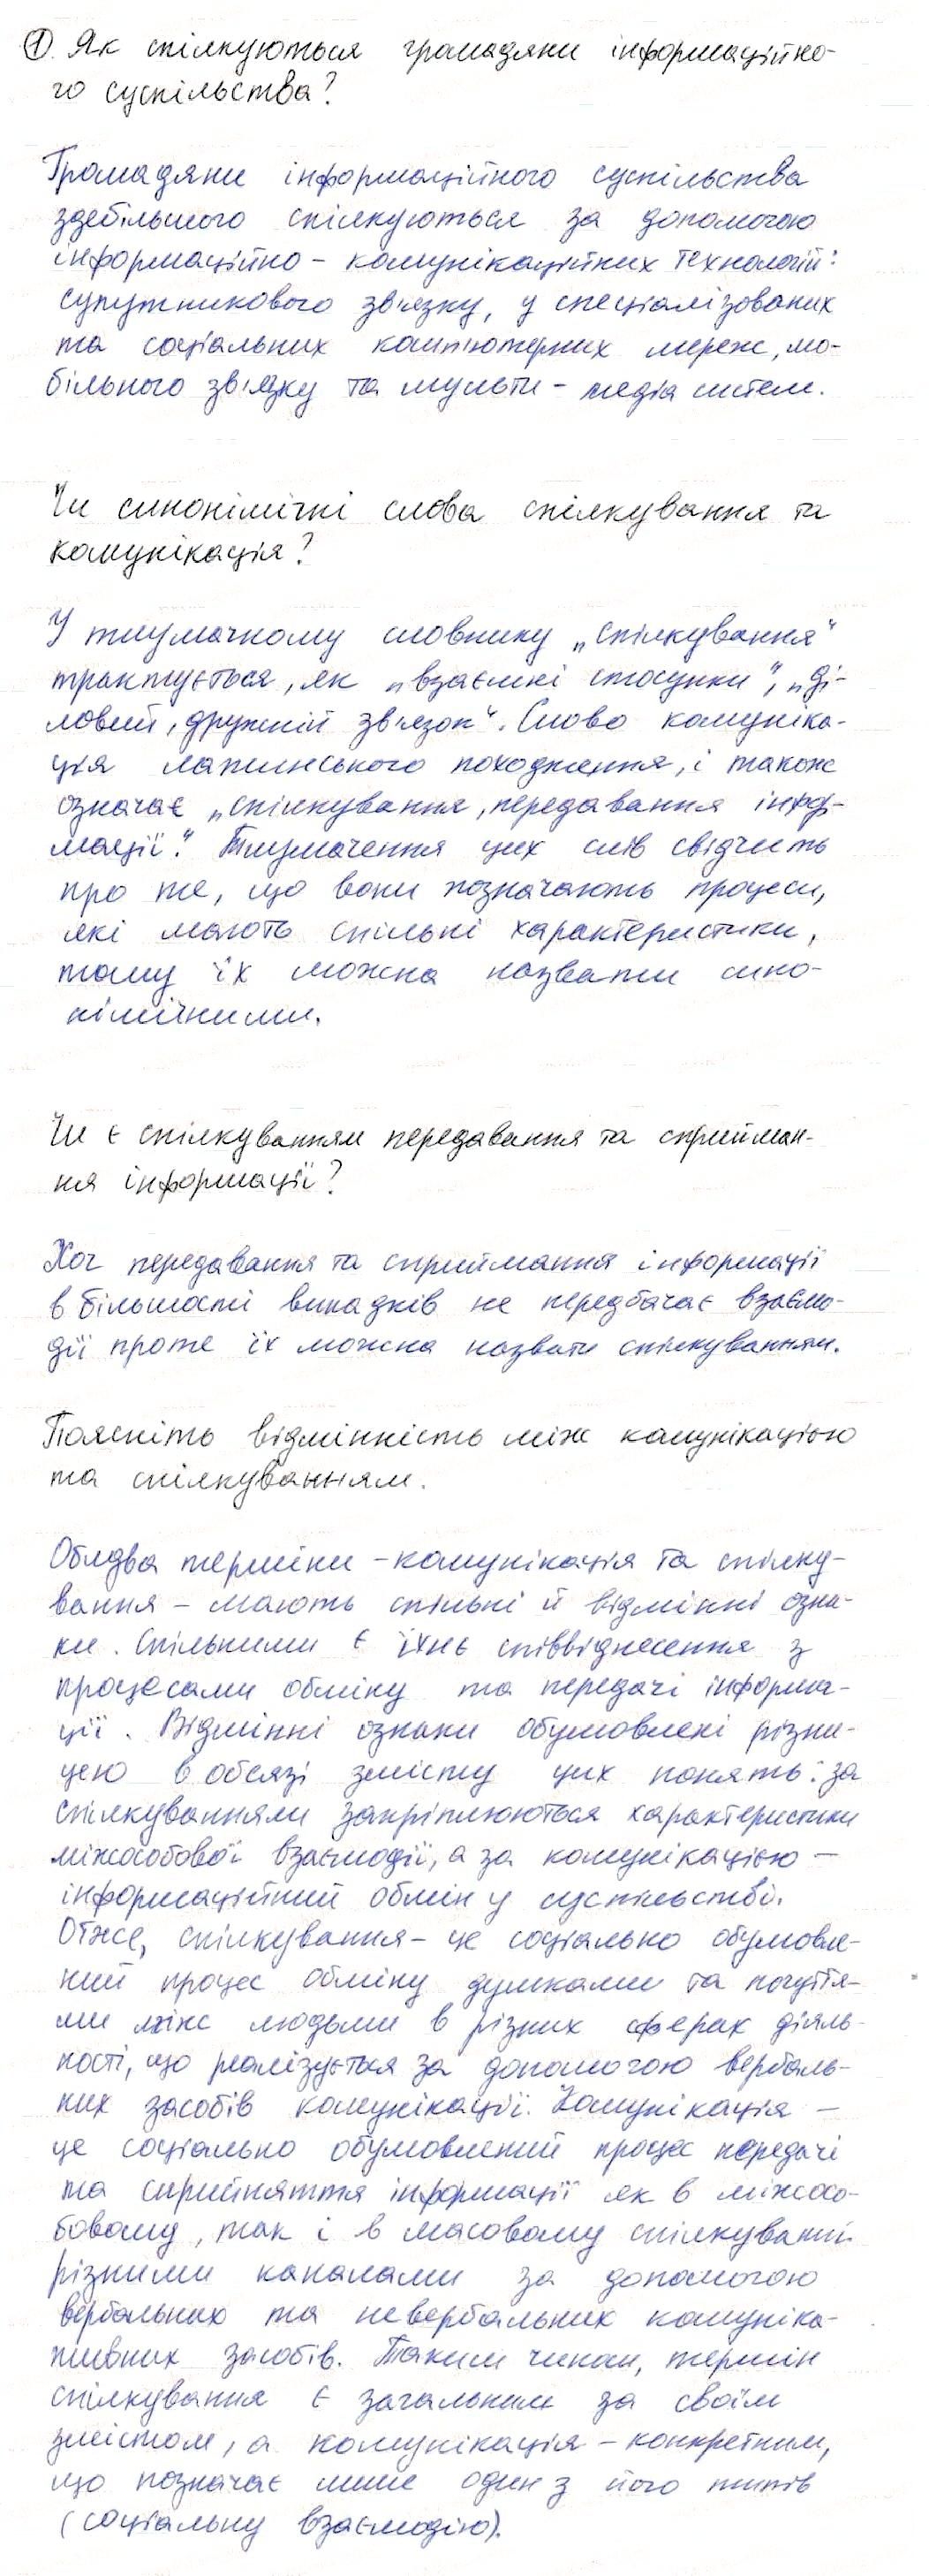 ① Як спілкуються громадяни інформаційно-
го суспільства?
Громадяни інформаційного суспільства
здебільшого спілкуються за допомогою
інформаційно - комунікаційних технологій:
супутникового зв'язку, у спеціалізованих
та соціальних комп'ютерних мереж, мо-
більного зв'язку та мульти - медіа систем.
Чи синонімічні слова спілкування та
комунікація?
У тлумачному словнику „спілкування"
трактується, як „взаємні стосунки", „ді-
ловий, дружній зв'язок". Слово комуніка-
ція латинського походження, і також
означає „спілкування, передавання інфор-
мації". Тлумачення цих слів свідчить
про те, що вони позначають процеси,
які мають спільні характеристики,
тому їх можна назвати сино-
німічними.
Чи є спілкуванням передавання та сприйман-
ня інформації?
Хоч передавання та сприймання інформації
в більшості випадків не передбачає взаємо-
дії проте їх можна назвати спілкуванням.
Поясніть відмінність між комунікацією
та спілкуванням.
Обидва терміни - комунікація та спілку-
вання - мають спільні й відмінні озна-
ки. Спільними є їхнє співвіднесення з
процесами обміну та передачі інформа-
ції. Відмінні ознаки обумовлені різни-
цею в обсязі змісту цих понять: за
спілкуванням закріплюються характеристики
міжособової взаємодії, а за комунікацією -
інформаційний обмін у суспільстві.
Отже, спілкування - це соціально обумовле-
ний процес обміну думками та почуття-
ми між людьми в різних сферах діяль-
ності, що реалізується за допомогою вербаль-
них засобів комунікації. Комунікація -
це соціально обумовлений процес передачі
та сприйняття інформації як в міжосо-
бовому, так і в масовому спілкуванні
різними каналами за допомогою
вербальних та невербальних комуніка-
тивних засобів. Таким чином, термін
спілкування є загальним за своїм
змістом, а комунікація - конкретним,
що позначає лише один з його типів
(соціальну взаємодію).